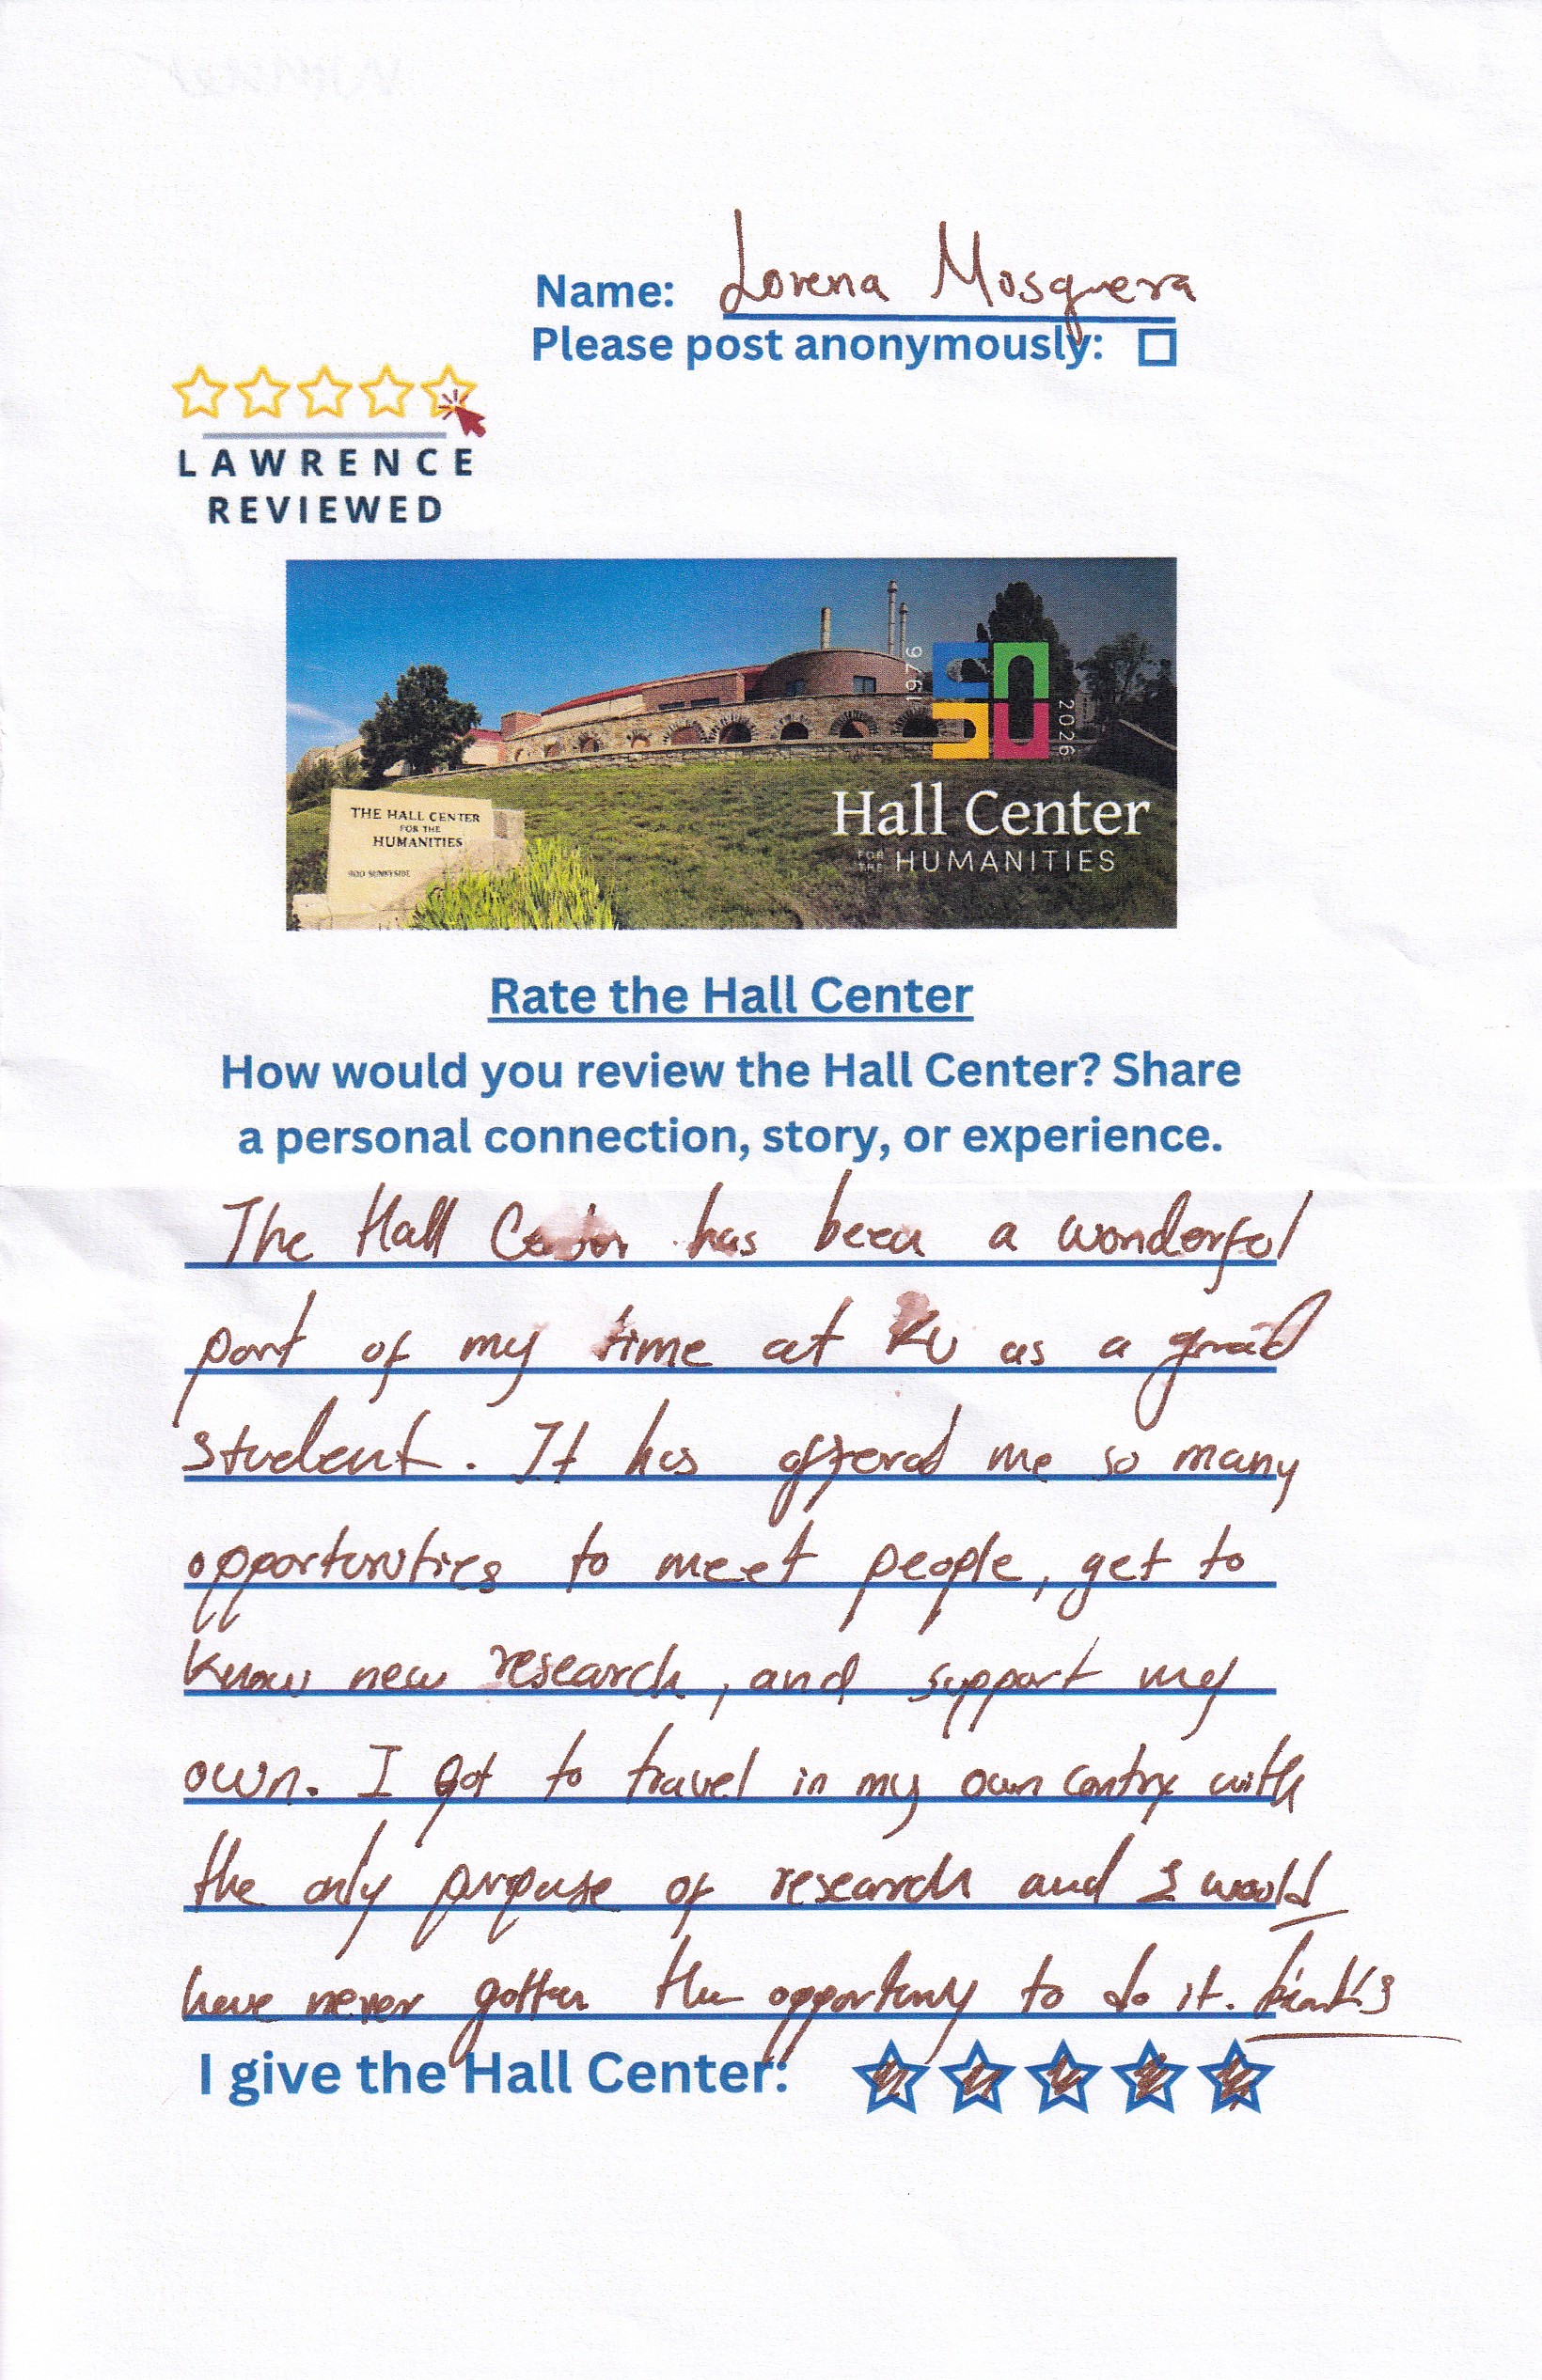 Name: Lorena Mosquera
Please post anonymously:
LAWRENCE
REVIEWED
1976
2026
THE HALL CENTER
FOR THE
HUMANITIES
900 SUNNYSIDE
Hall Center
FOR THE HUMANITIES
Rate the Hall Center
How would you review the Hall Center? Share
a personal connection, story, or experience.
The Hall Center has been a wonderful
part of my time at KU as a grad
student. It has offered me so many
opportunities to meet people, get to
know new research, and support my
own. I got to travel in my own contry with
the only purpose of research and I would
have never gotten the opportuny to do it.
I give the Hall Center: